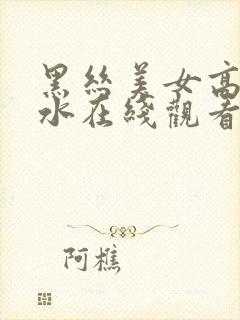 黑絲美女高
水在綫觀看
阿樵